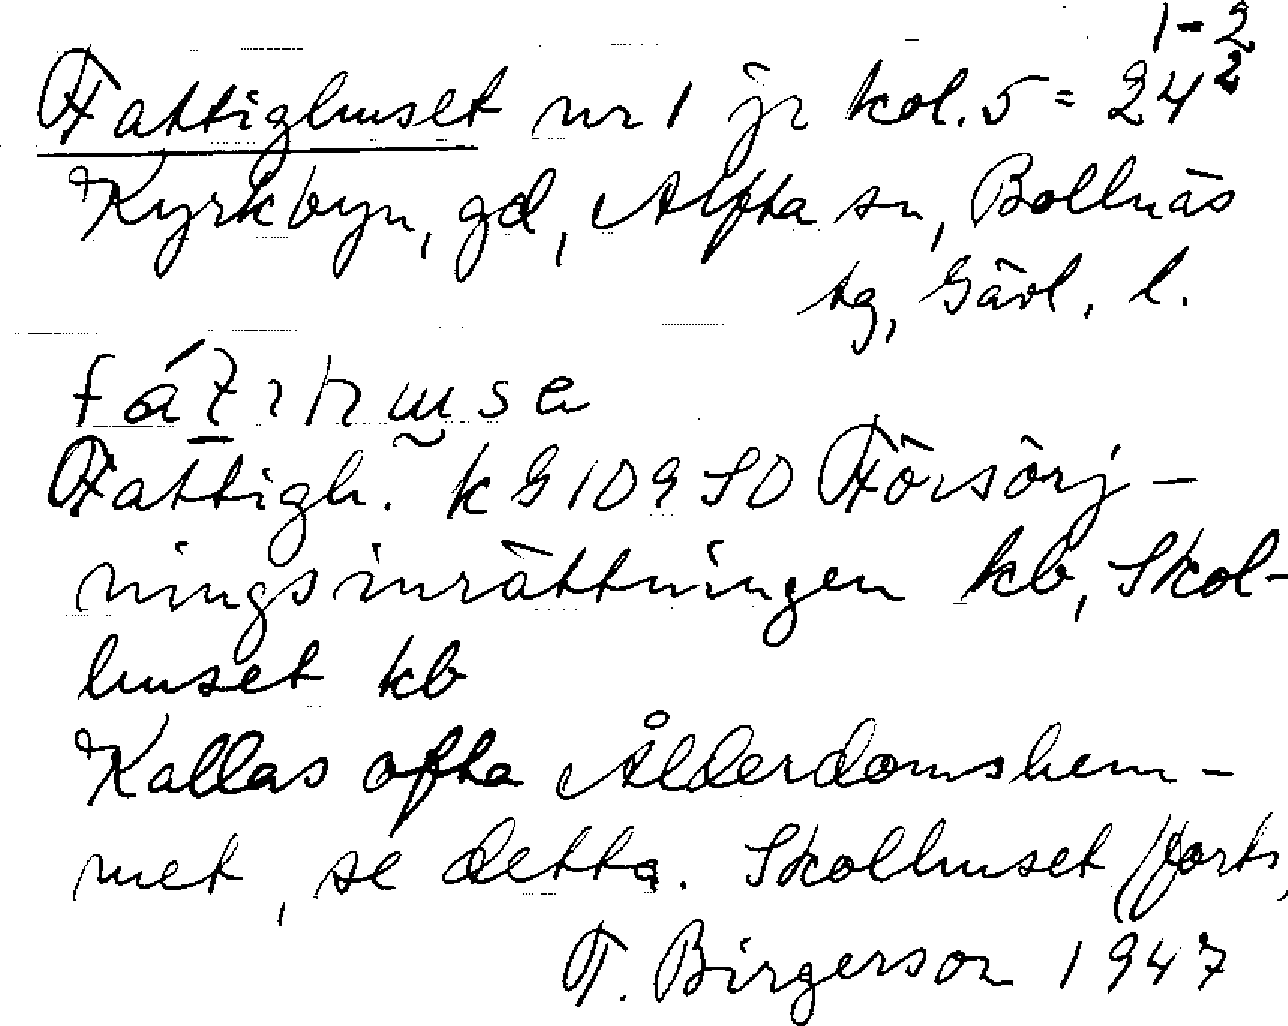 1-2
Fattighuset nr 1 jr kol. 5 = 24²
Kyrkbyn, gd, Alfta sn, Bollnäs
tg, Gävl. l.
Fattigh. k G 109 SO Försörj-
ningsinrättningen kb, Skol-
huset kb
Kallas ofta Ålderdomshem-
met, se detta. Skolhuset /forts,
T. Birgerson 1947